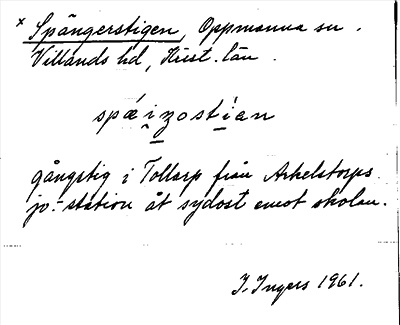 x Spångerstigen, Oppmanna sn.
Villands hd, Krist. län.
gångstig i Tollarp från Arkelstorps
jv.-station åt sydost emot skolan.
I. Ingers 1961.